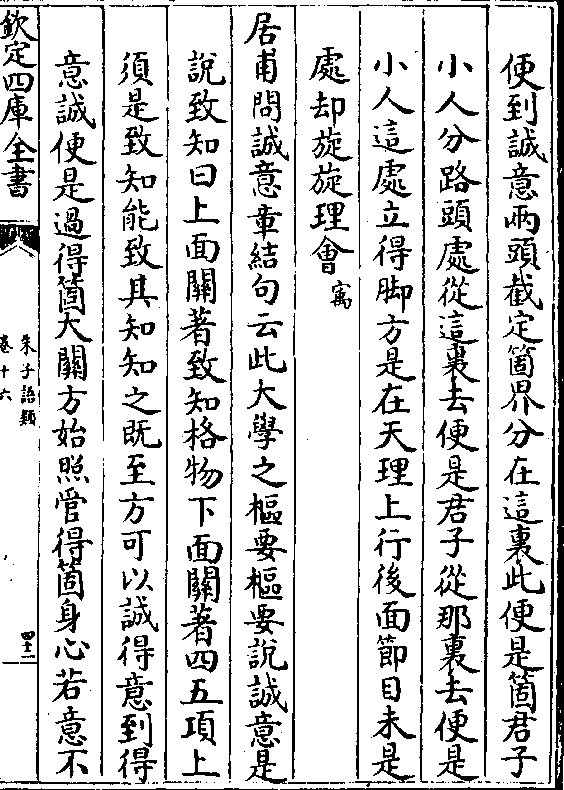 便到誠意兩頭截定箇界分在這裏此便是箇君子
小人分路頭處從這裏去便是君子從那裏去便是
小人這處立得脚方是在天理上行後面節目未是
處却旋旋理會㝢
居甫問誠意章結句云此大學之樞要樞要說誠意是
說致知曰上面關著致知格物下面關著四五項上
須是致知能致其知知之既至方可以誠得意到得
意誠便是過得箇大關方始照管得箇身心若意不
欽定四庫全書
朱子語類
卷十六